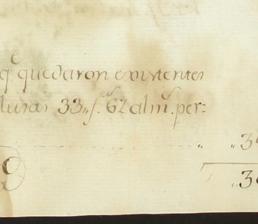 q.e quedaron existentes
duras 33,,f.s 6½ alm.s per-
,,3
,,3